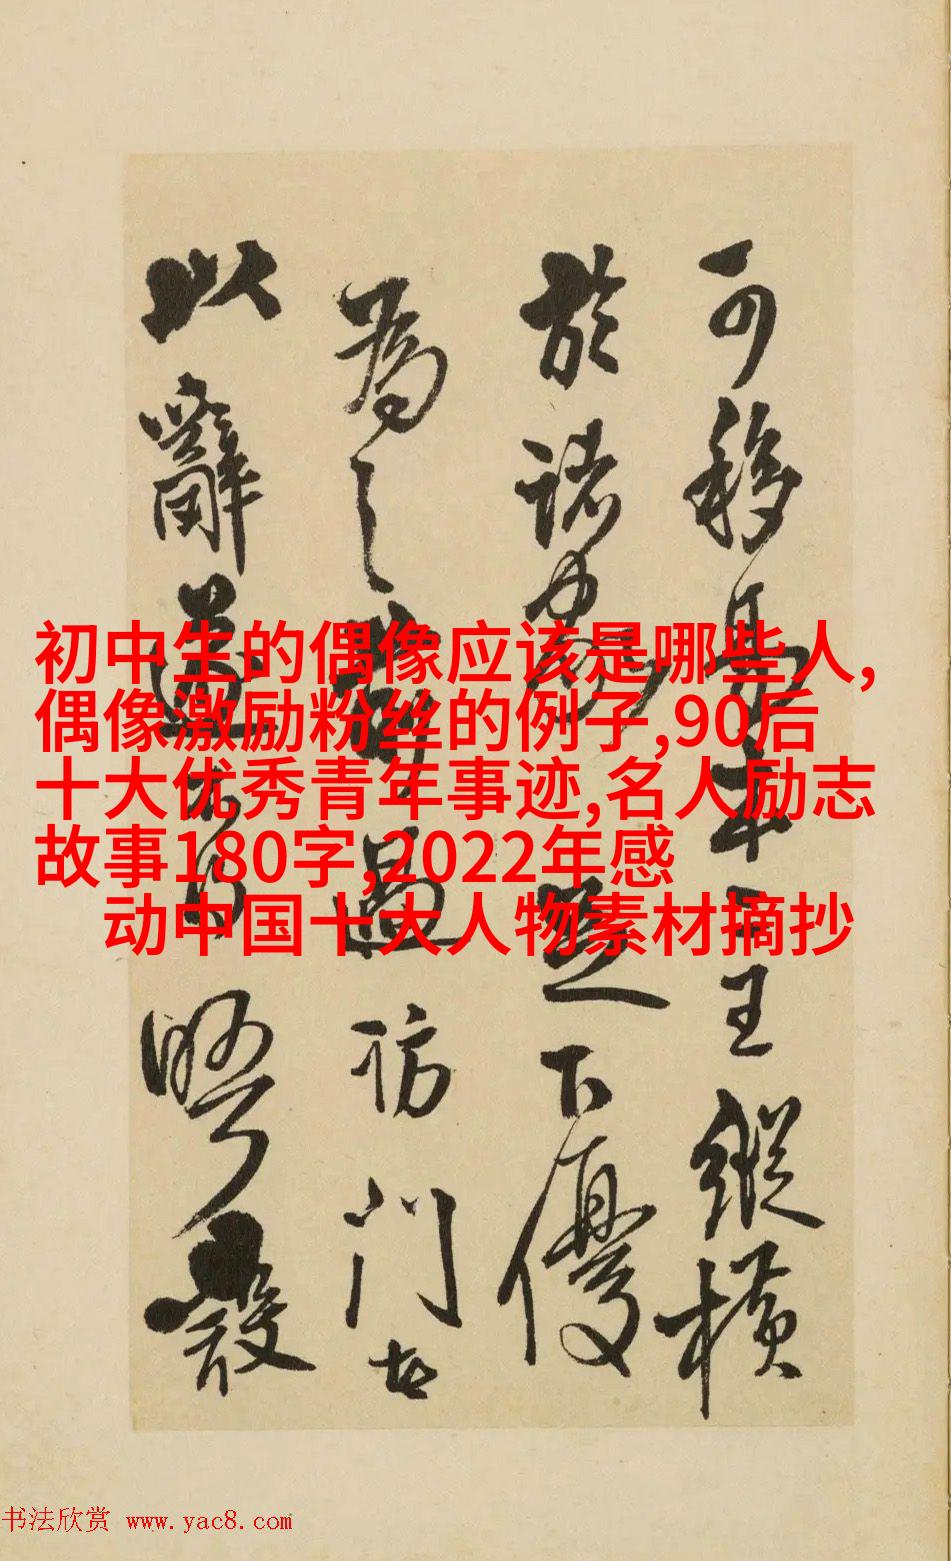 可移易本二王縱橫
於諸家
題下優
為之
過訪門古
以辭
設
初中生的偶像应该是哪些人,
偶像激励粉丝的例子,90后
十大优秀青年事迹,名人励志
故事180字,2022年感
动中国十大人物素材摘抄
书法欣赏 www.yac8.com